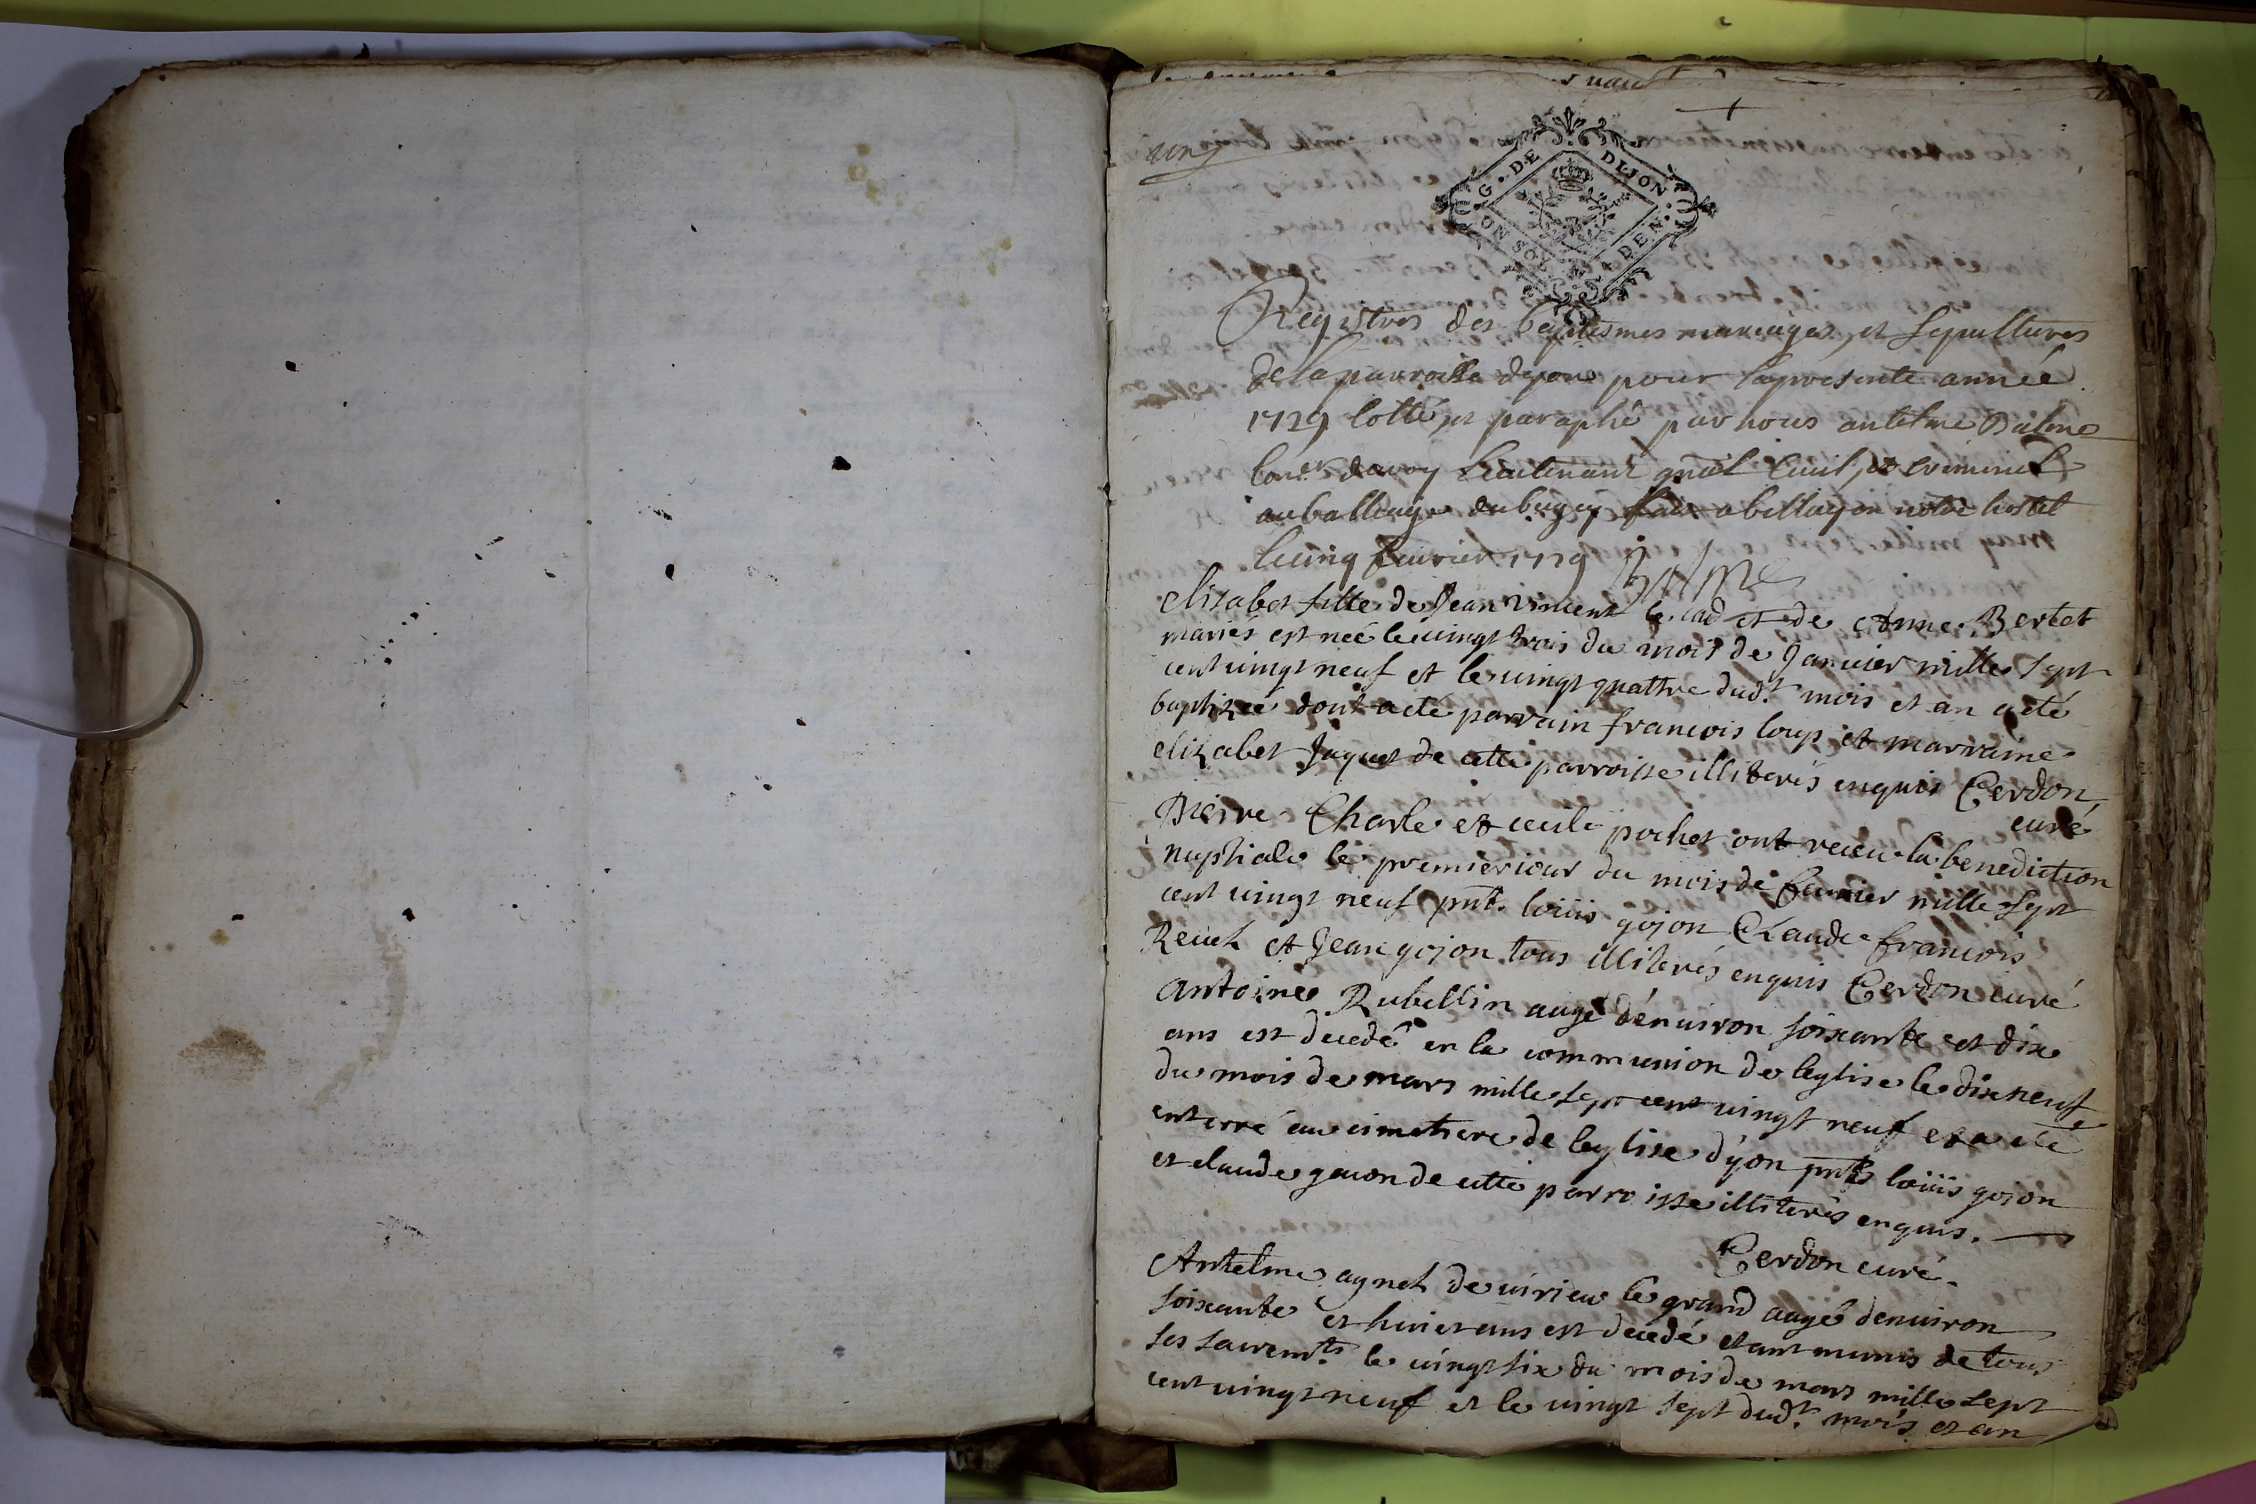 une
G. DE DIJON
ON SOL DEN.
Registres des baptesmes mariages et sepultures
de la parroisse dyon pour la presente année
1729 cotté et paraphé par nous antelme Balme
Coner du roy Lieutenant gnal Civil et criminel
au balliage du bugey a bellay en notre hostel
le cinq feuvrier 1729 Balme
elisabet fille de Jean vincent et de Anne Bertet
mariés est neé le vingt trois du mois de Janvier mille sept
cent vingt neuf et le vingt quattre dudt mois et an a eté
baptizeé dont acte parrain francois loup et marraine
elizabet Juquet de cette parroisse illiterés enquis Cerdon
curé
Pierre Charle et cecile pochet ont receu la benediction
nuptiale le premier iour du mois de feuvrier mille sept
cent vingt neuf pnt. loüis gojon Claude francois
Reuet et Jean gojon tous illiterés enquis Cerdon curé
Antoine Rubellin aagé d'environ soixante et dix
ans est decedé en la communion de leglise le dixneuf
du mois de mars mille sept cent vingt neuf et a eté
enterré au cimetiere de leglise d'yon pnts loüis gojon
et claude gouon de cette parroisse illiterés enquis.
Cerdon curé.
Antelme agnet de virieu le grand aagé denviron
soixante et huict ans est decedé etant munis de tous
ses sacremts. le vingt six du mois de mars mille sept
cent vingt neuf et le vingt sept dudt. mois et an